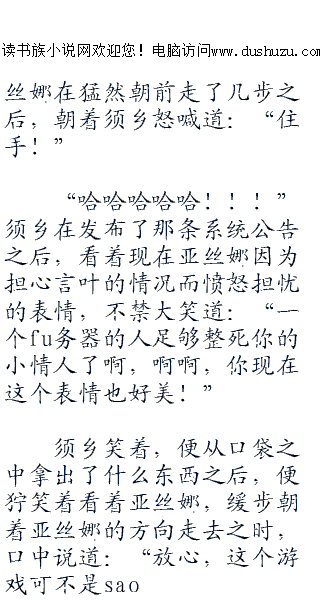 读书族小说网欢迎您！电脑访问www.dushuzu.com
丝娜在猛然朝前走了几步之
后，朝着须乡怒喊道：“住
手！”
“哈哈哈哈哈！！！”
须乡在发布了那条系统公告
之后，看着现在亚丝娜因为
担心言叶的情况而愤怒担忧
的表情，不禁大笑道：“一
个fu务器的人足够整死你的
小情人了啊，啊啊，你现在
这个表情也好美！”
须乡笑着，便从口袋之
中拿出了什么东西之后，便
狞笑着看着亚丝娜，缓步朝
着亚丝娜的方向走去之时，
口中说道：“放心，这个游
戏可不是sao